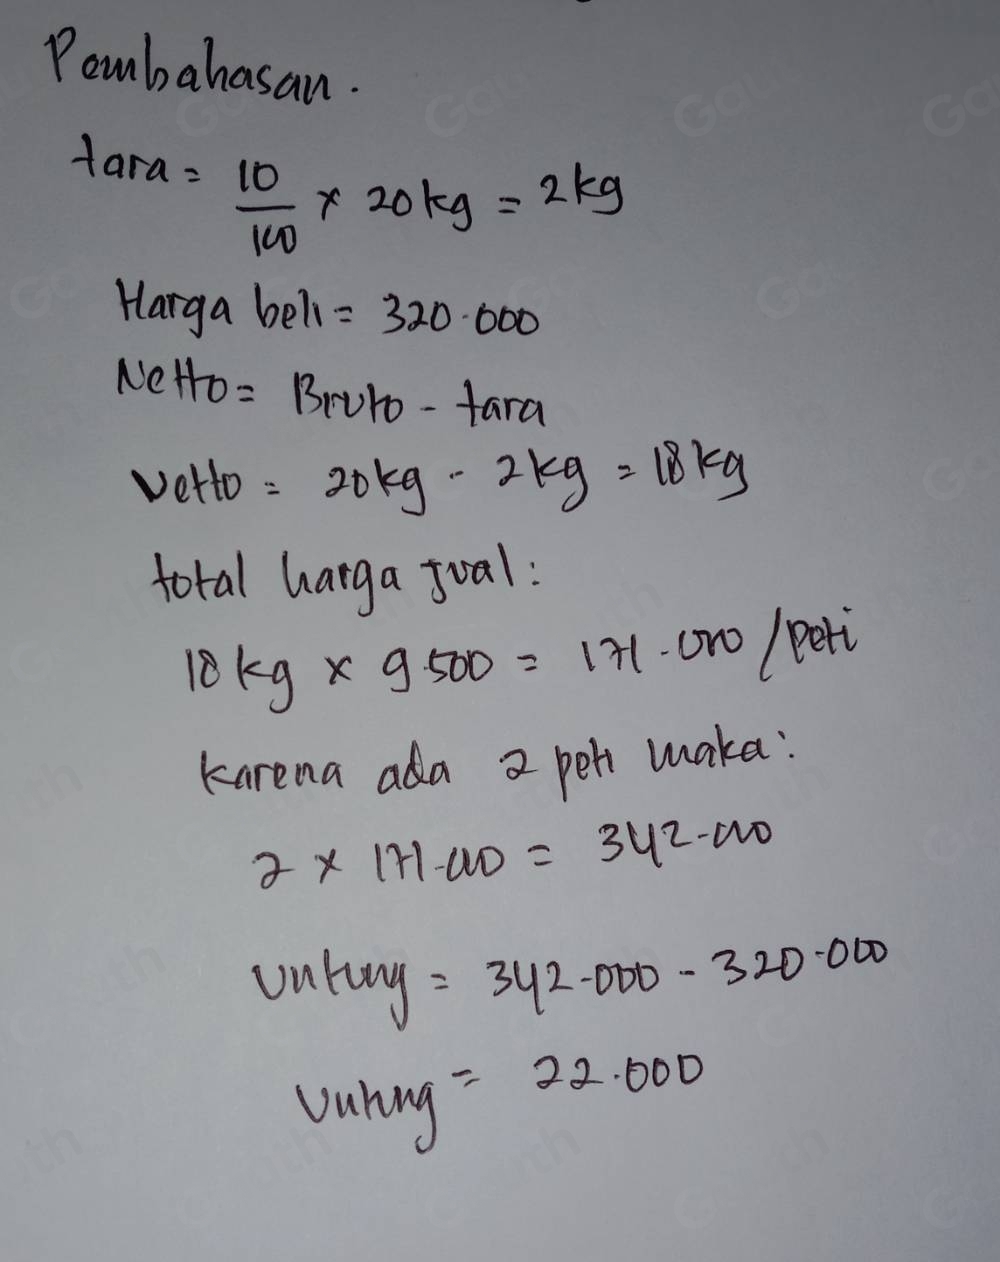 Pembahasan.
tara = 10/100 x 20 kg = 2 kg
Harga beli = 320.000
Netto = Bruto - tara
Netto = 20 kg - 2 kg = 18 kg
total harga jual :
18 kg x 9.500 = 171.000 / peti
karena ada 2 peti maka :
2 x 171.000 = 342.000
Untung = 342.000 - 320.000
Untung = 22.000